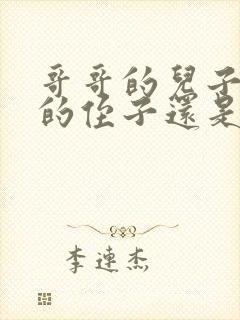 哥哥的兒子
的侄子還是
李連杰